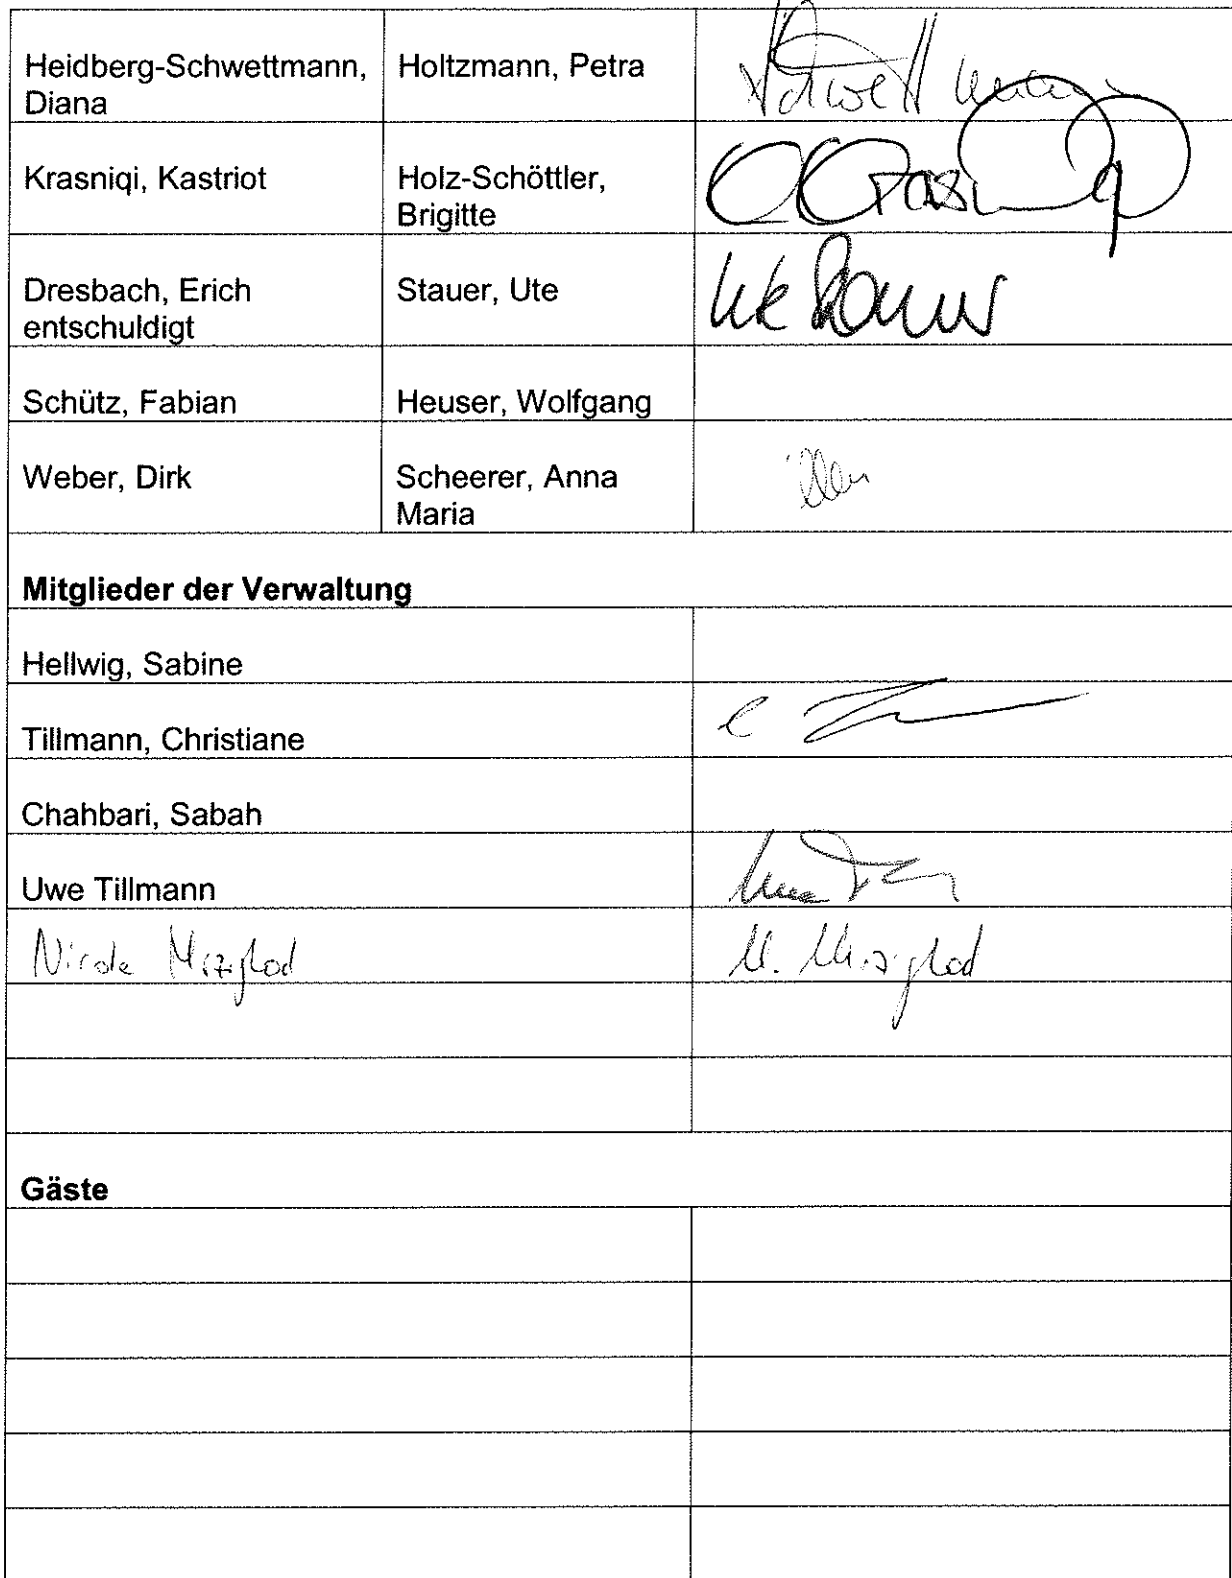 Heidberg-Schwettmann, Holtzmann, Petra
Diana
Krasniqi, Kastriot Holz-Schöttler,
Brigitte
Dresbach, Erich Stauer, Ute
entschuldigt
Ute Stauer
Schütz, Fabian Heuser, Wolfgang
Weber, Dirk Scheerer, Anna
Maria
Mitglieder der Verwaltung
Hellwig, Sabine
Tillmann, Christiane
Chahbari, Sabah
Uwe Tillmann
Nicole
Gäste